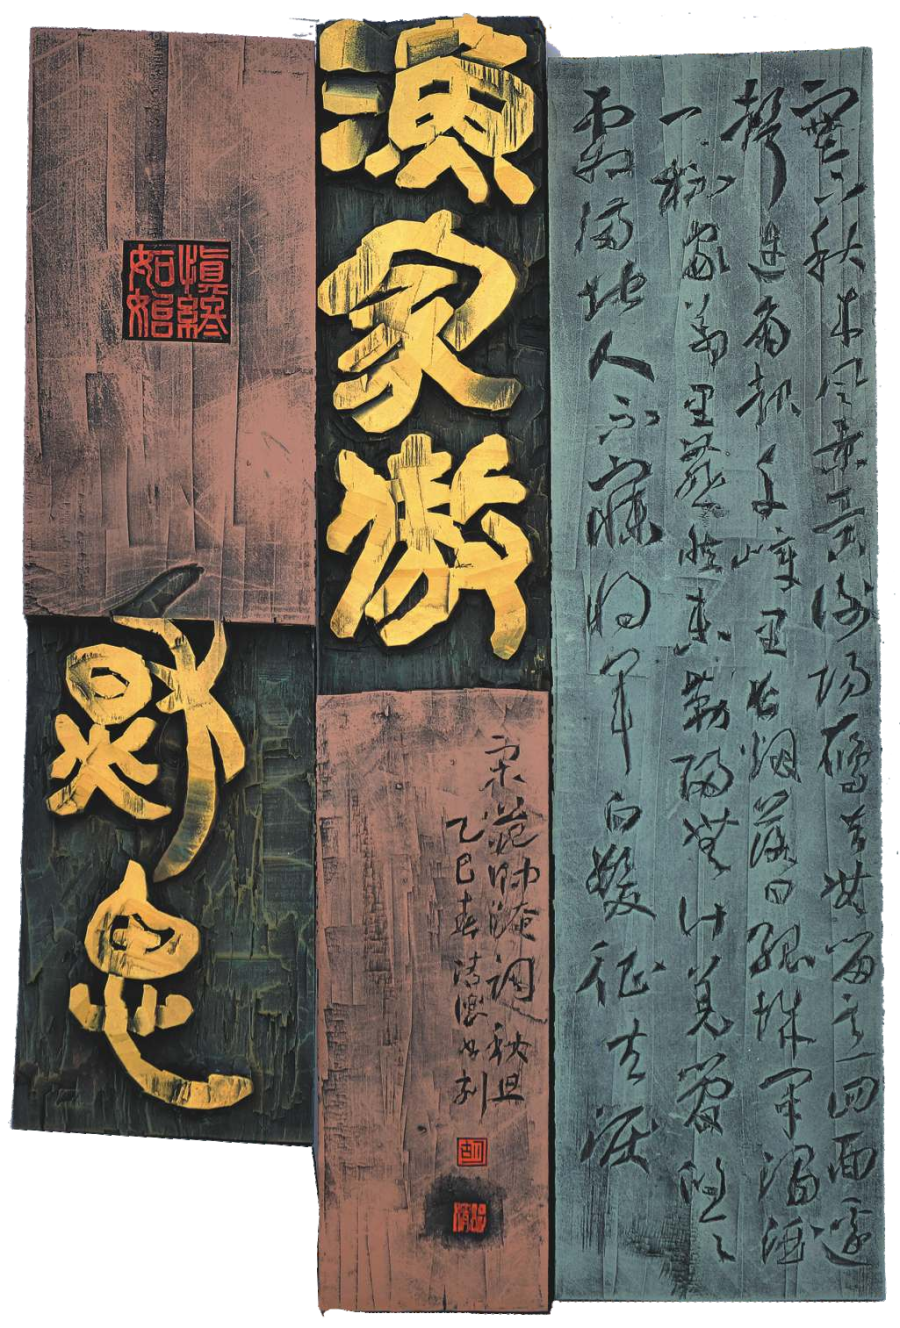 塞下秋来风景异衡阳雁去無留意四面边
聲连角起千嶂里长烟落日孤城闭浊酒
一杯家萬里燕然未勒归無计羌管悠悠
霜满地人不寐将军白髮征夫泪
漁家傲
秋思
宋范仲淹词秋思
乙巳春
书刻
慎终如始